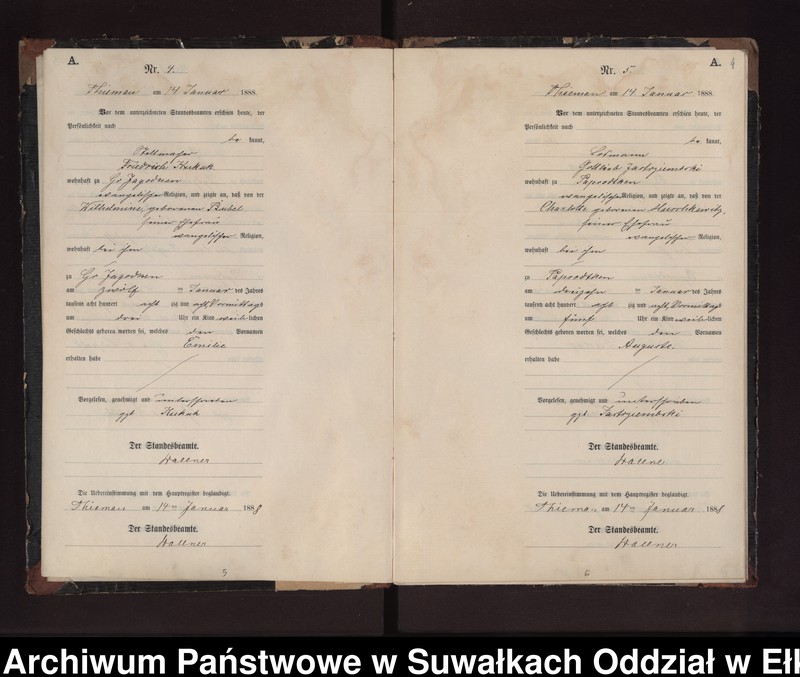 A.
Nr. 4.
Thieman am 14 Januar 1888.
Vor dem unterzeichneten Standesbeamten erschien heute, der
Persönlichkeit nach
be kannt,
Stellmacher
Friedrich Kukuk
wohnhaft zu Gr Jagodnen
evangelischer Religion, und zeigte an, daß von der
Wilhelmine, geborenen
seiner Ehefrau
evangelischer Religion,
wohnhaft bei ihm
zu Gr Jagodnen
am zwölf ten Januar des Jahres
tausend acht hundert acht zig und acht, Vormittags
um drei Uhr ein Kind weib-lichen
Geschlechts geboren worden sei, welches den Vornamen
Emilie
erhalten habe
Vorgelesen, genehmigt und unterschrieben
ggl Kukuk
Der Standesbeamte.
Wallner
Die Uebereinstimmung mit dem Hauptregister beglaubigt.
Thieman am 14ten Januar 1888
Der Standesbeamte.
Wallner
5
A.
4
Nr. 5.
Thieman am 14 Januar 1888.
Vor dem unterzeichneten Standesbeamten erschien heute, der
Persönlichkeit nach
be kannt,
Losmann
Gottlieb Jastrziembski
wohnhaft zu Paprodtken
evangelischer Religion, und zeigte an, daß von der
Charlotte geborenen
seiner Ehefrau
evangelischer Religion,
wohnhaft bei ihm
zu Paprodtken
am dreizehn ten Januar des Jahres
tausend acht hundert acht zig und acht, Vormittags
um fünf Uhr ein Kind weib-lichen
Geschlechts geboren worden sei, welches den Vornamen
Auguste.
erhalten habe
Vorgelesen, genehmigt und unterschrieben
ggl Jastrziembski
Der Standesbeamte.
Wallner
Die Uebereinstimmung mit dem Hauptregister beglaubigt.
Thieman am 14ten Januar 1888
Der Standesbeamte.
Wallner
6
Archiwum Państwowe w Suwałkach Oddział w Ełk